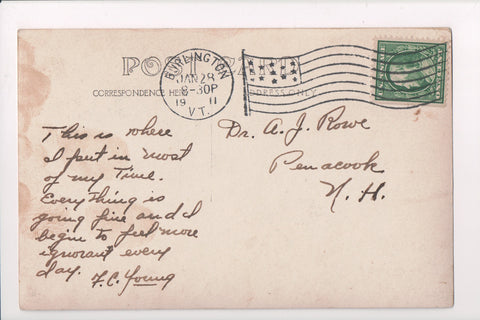 POST CARD
CORRESPONDENCE HERE
ADDRESS ONLY
BURLINGTON
JAN 28
8-30P
19 11
VT.
This is where
I put in most
of my time.
Everything is
going fine and I
begin to feel more
ignorant every
day. F.C. Young
Dr. A. J. Rowe
Penacook
N. H.